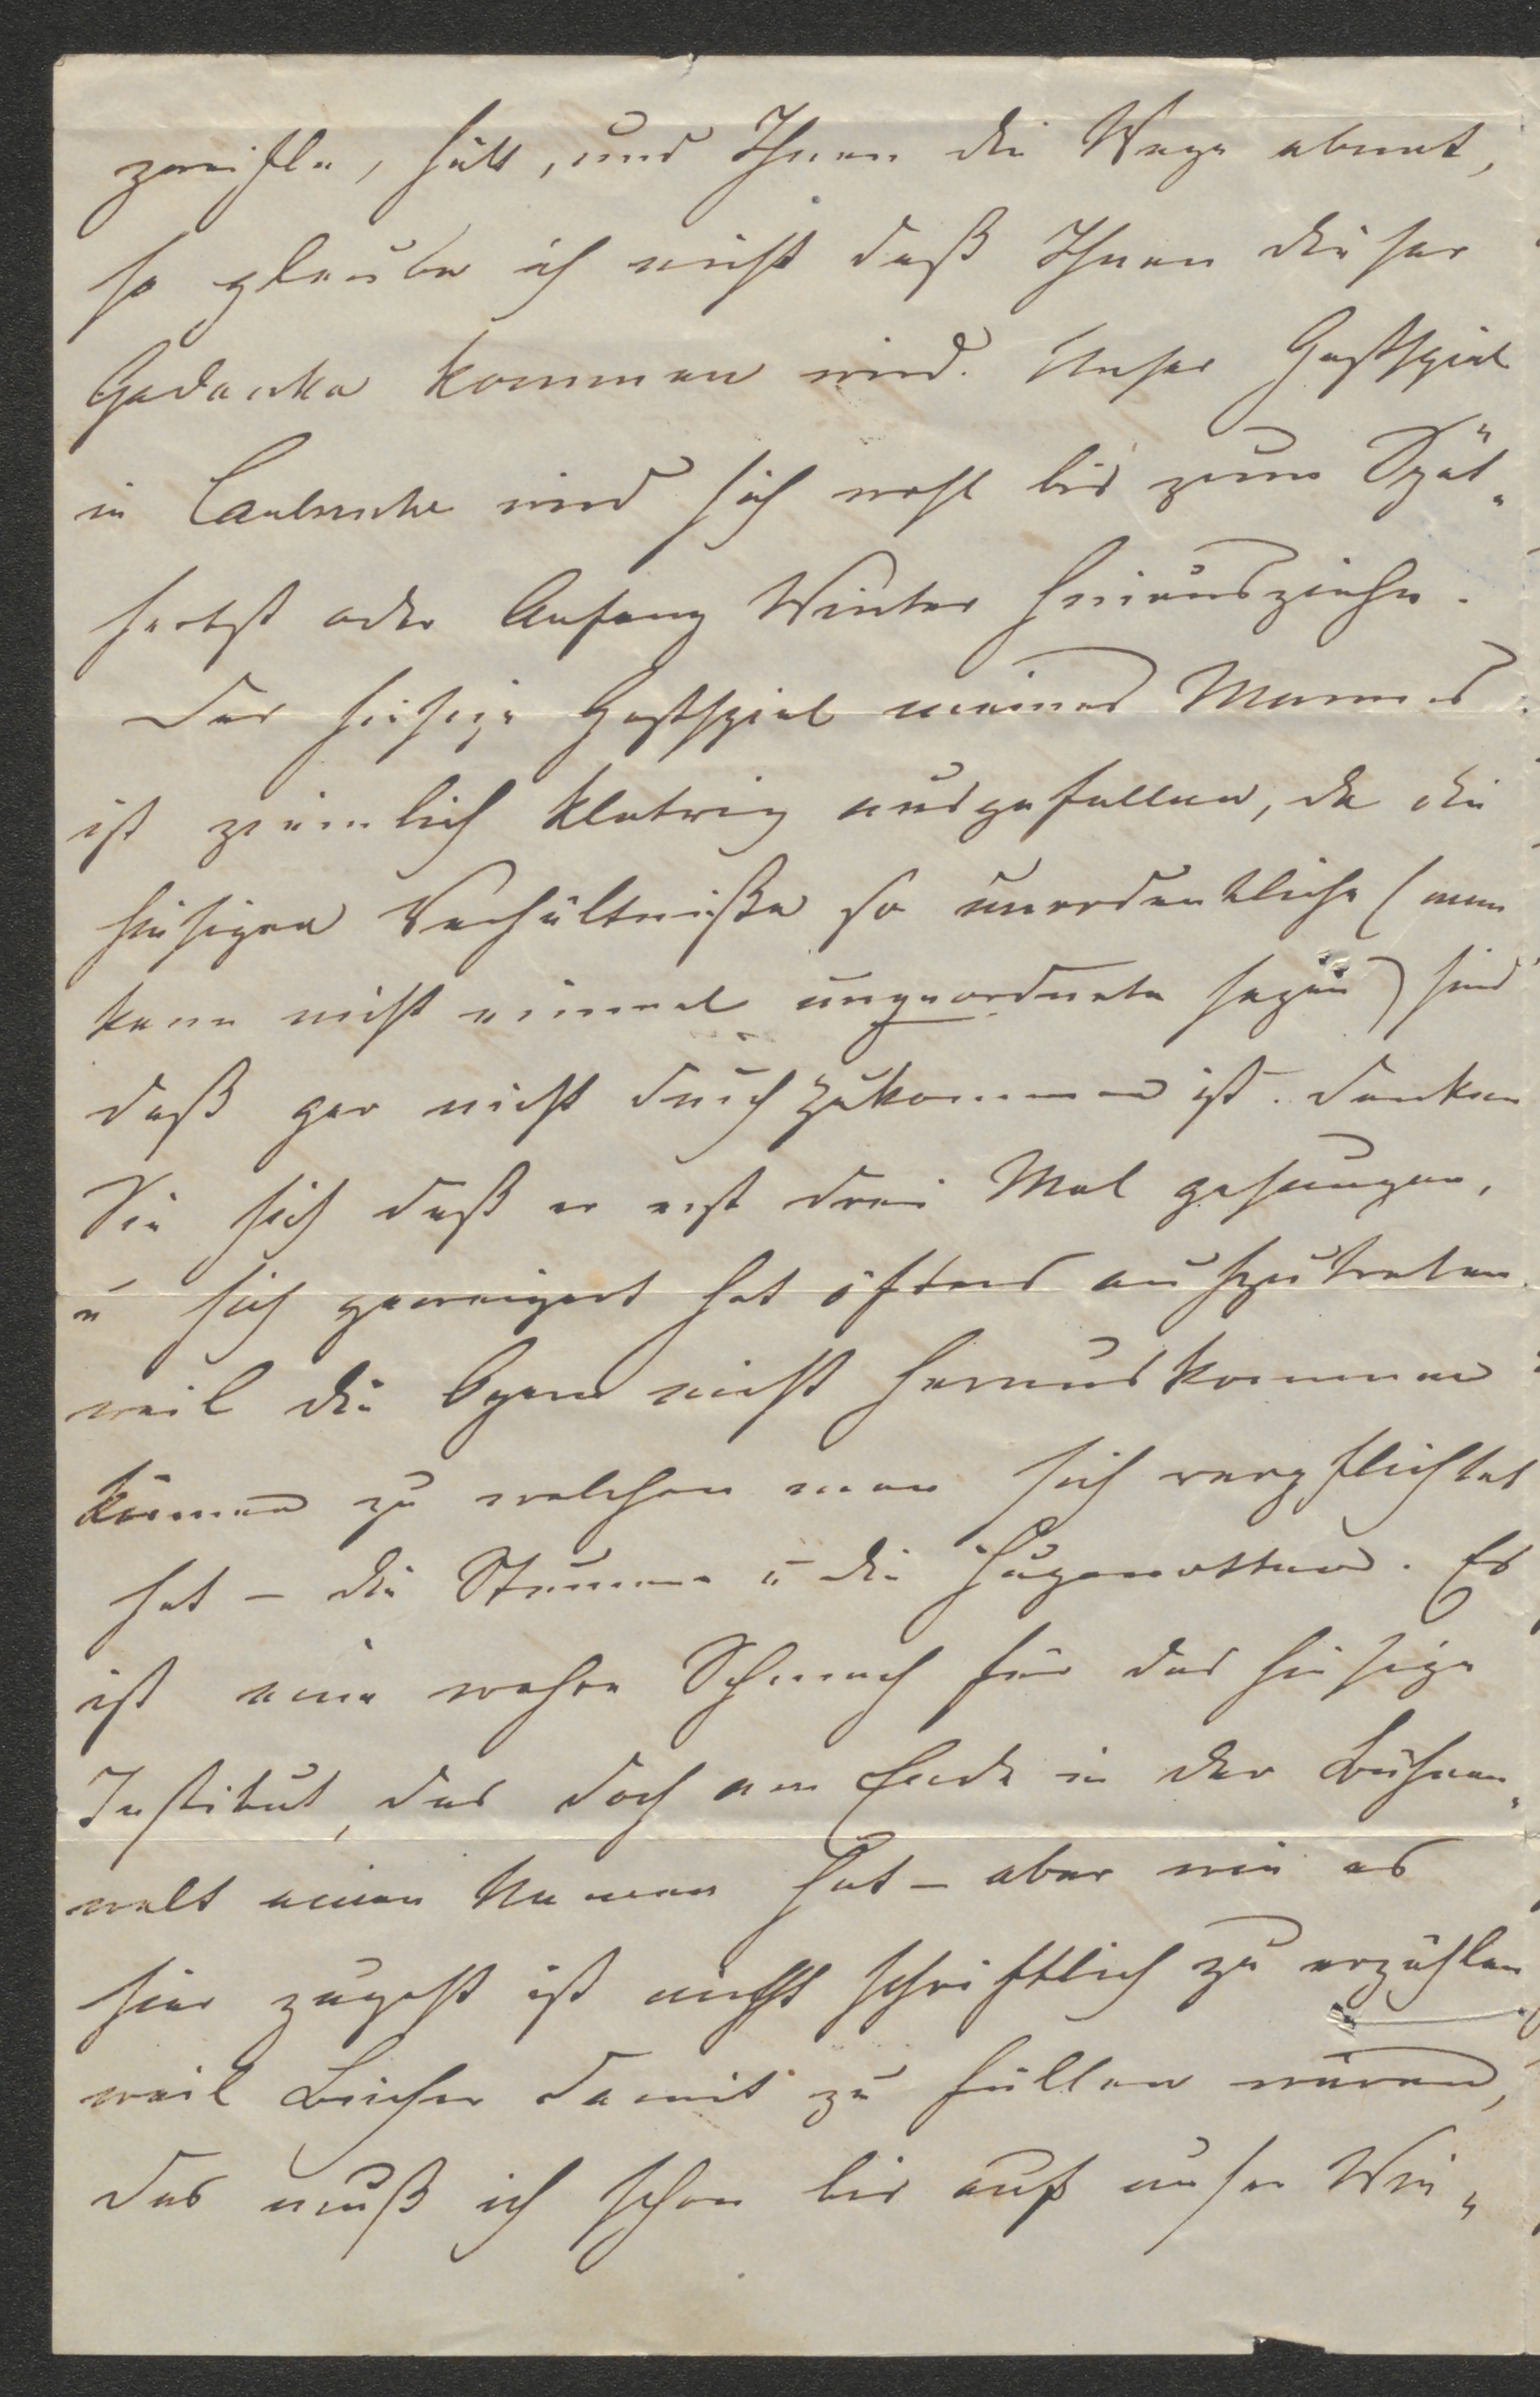 zweifle, hält, und Ihnen die Wege ebnet,
so glaube ich nicht daß Ihnen dieser
Gedanke kommen wird. Unser Gastspiel
in Carlsruhe wird sich wohl bis zum Spät„
herbst oder Anfang Winter hinausziehn.
Das hiesige Gastspiel meines Mannes
ist ziemlich klatrig ausgefallen, da die
hiesigen Verhältniße so unordentliche (man
kann nicht einmal ungeordnete sagen) sind
daß gar nicht durchzukommen ist. Denken
Sie sich daß er erst drei Mal gesungen,
u sich geweigert hat öfters aufzutreten
weil die Opern nicht herauskommen
können zu welchen man sich verpflichtet
hat – die Stumme u die Hugenotten. Es
ist eine wahre Schmach für das hiesige
Institut, das doch am Ende in der Bühnen„
welt einen Namen hat – aber wie es
hier zugeht ist nicht schriftlich zu erzählen
weil Bücher damit zu füllen wären,
das muß ich schon bis auf unser Wie„